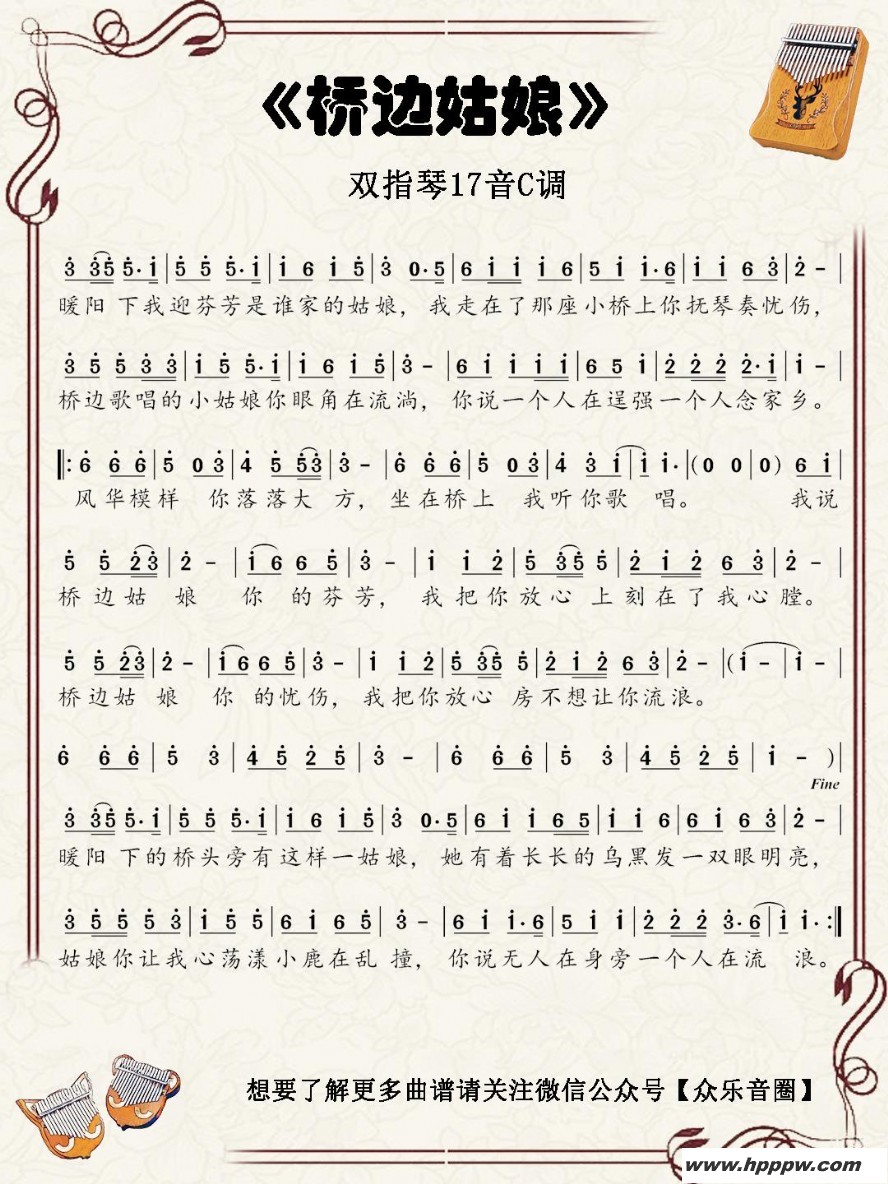 《桥边姑娘》
双指琴17音C调
3 35 5·1|5 5 5·1|1 6 1 5|3 0·5|6 1 1 1 6|5 1 1·6|1 1 6 3|2 -|
暖阳 下我迎芬芳是谁家的姑娘，我走在了那座小桥上你抚琴奏忧伤，
3 5 5 3 3|1 5 5·1|1 6 1 5|3 -|6 1 1 1 1|6 5 1|2 2 2 2·1|1 -|
桥边歌唱的小姑娘你眼角在流淌，你说一个人在逞强一个人念家乡。
‖:6 6 6|5 0 3|4 5 53|3 -|6 6 6|5 0 3|4 3 1|1 1·|(0 0|0) 6 1|
风华模样 你落落大 方，坐在桥上 我听你歌 唱。 我说
5 5 23|2 -|16 6 5|3 -|1 1 2|5 35 5|2 1 2 6 3|2 -|
桥 边姑 娘 你 的芬芳，我把你放心 上刻在了我心膛。
5 5 23|2 -|16 6 5|3 -|1 1 2|5 35 5|2 1 2 6 3|2 -|(1 -|1 -|
桥边姑 娘 你 的忧伤，我把你放心 房不想让你流浪。
6 6 6|5 3|4 5 2 5|3 -|6 6 6|5 3|4 5 2 5|1 - )|
Fine
3 35 5·1|5 5 5·1|1 6 1 5|3 0·5|6 1 1 6 5|6 1 6|6 1 6 3|2 -|
暖阳 下的桥头旁有这样一姑娘，她有着长长的乌黑发一双眼明亮，
3 5 5 5 3|1 5 5 5|6 1 6 5|3 -|6 1 1·6|5 1 1|2 2 2 3·6|1 1·:‖
姑娘你让我心荡漾小鹿在乱 撞，你说无人在身旁一个人在流 浪。
想要了解更多曲谱请关注微信公众号【众乐音圈】
www.hpppw.com